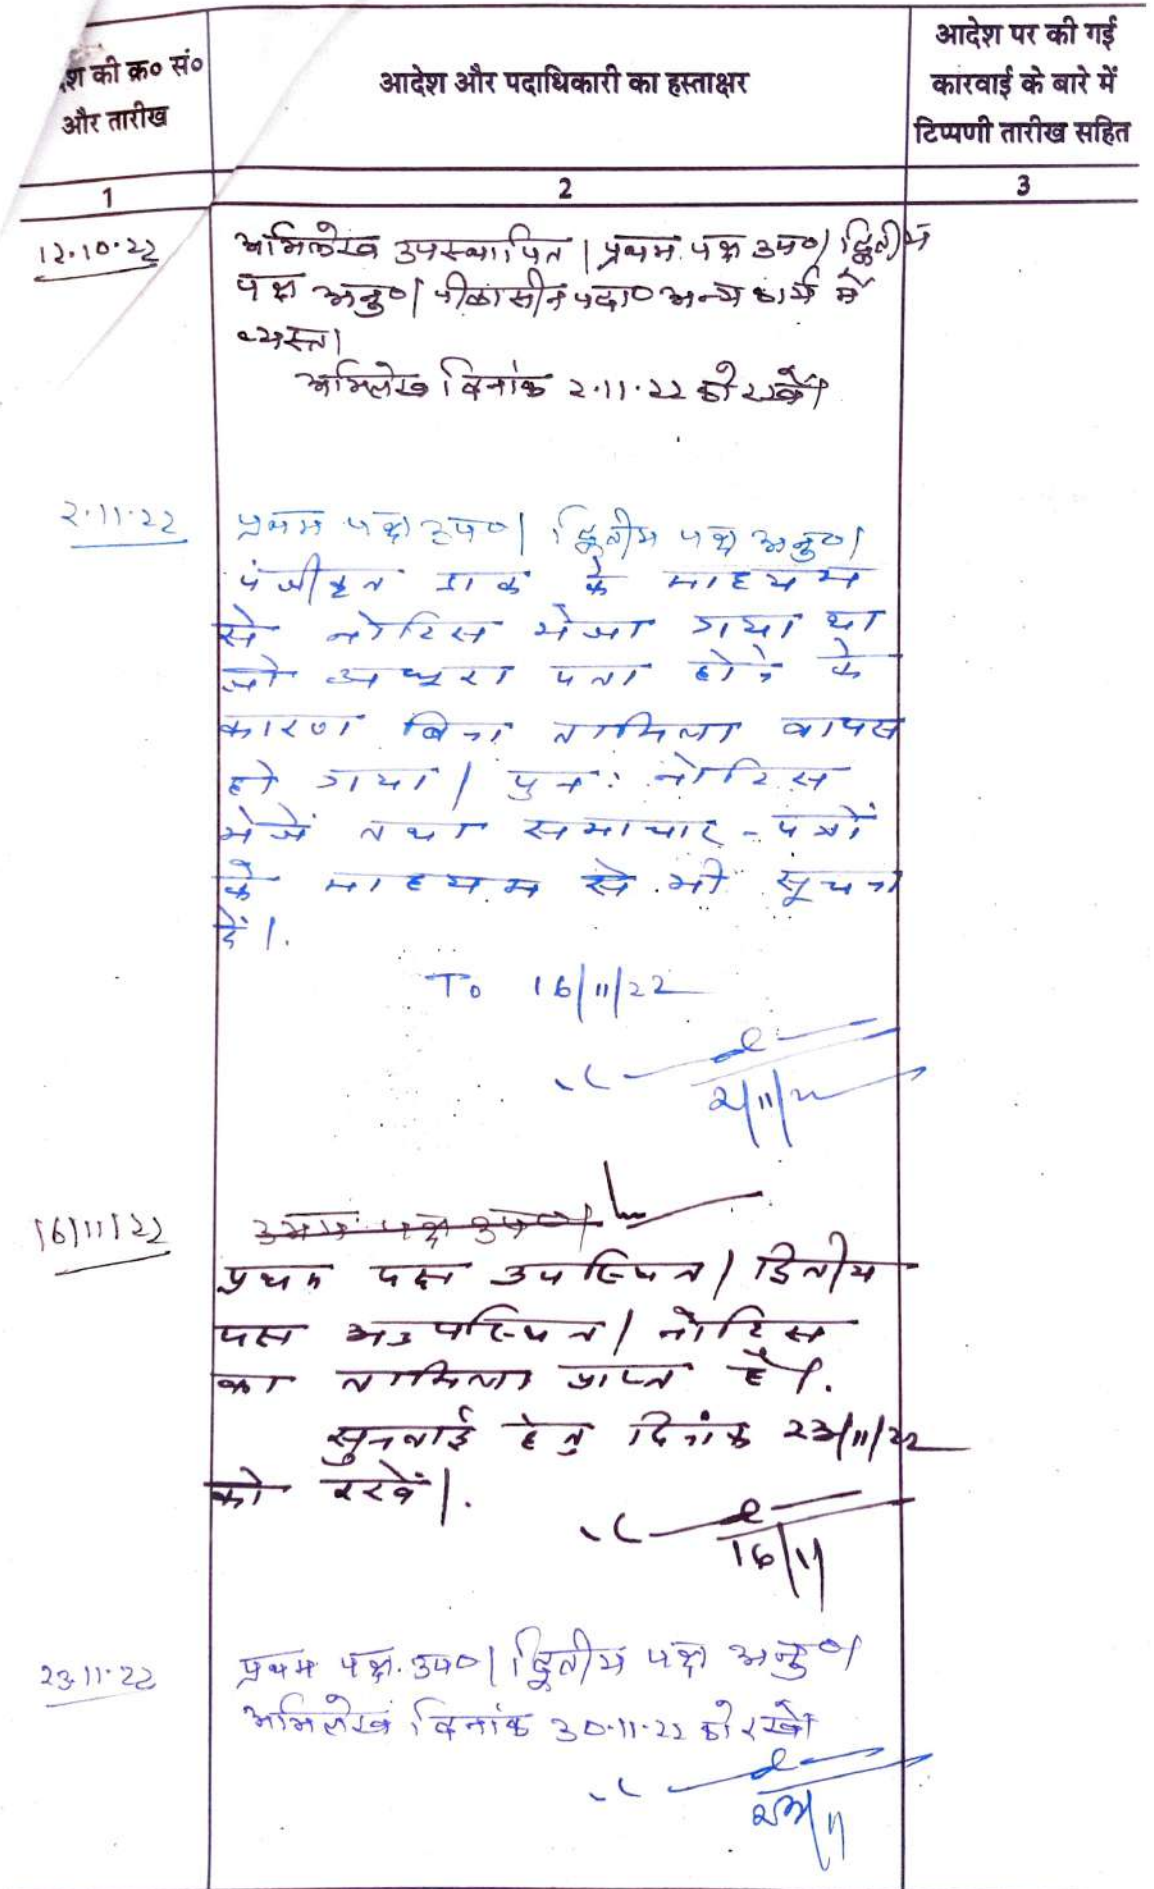 आदेश पर की गई
श की क्र० सं०
आदेश और पदाधिकारी का हस्ताक्षर
कारवाई के बारे में
और तारीख
टिप्पणी तारीख सहित
1
2
3
12.10.22
अभिलेख उपस्थापित। प्रथम पक्ष उप०। द्वितीय
पक्ष अनु०। पीठासीन पदा० अन्य कार्य में
व्यस्त।
अभिलेख दिनांक 2.11.22 को रखें।
2.11.22
प्रथम पक्ष उप०। द्वितीय पक्ष अनु०।
पंजीकृत डाक के माध्यम
से नोटिस भेजा गया था
जो अधूरा पता होने के
कारण बिना तामिला वापस
हो गया। पुनः नोटिस
भेजें तथा समाचार-पत्रों
के माध्यम से भी सूचना
दें।
To 16/11/22
2/11/22
16/11/22
उभय पक्ष उप०।
प्रथम पक्ष उपस्थित। द्वितीय
पक्ष अनुपस्थित। नोटिस
का तामिला प्राप्त है।
सुनवाई हेतु दिनांक 23/11/22
को रखें।
16/11
23.11.22
प्रथम पक्ष उप०। द्वितीय पक्ष अनु०।
अभिलेख दिनांक 30.11.22 को रखें।
23/11